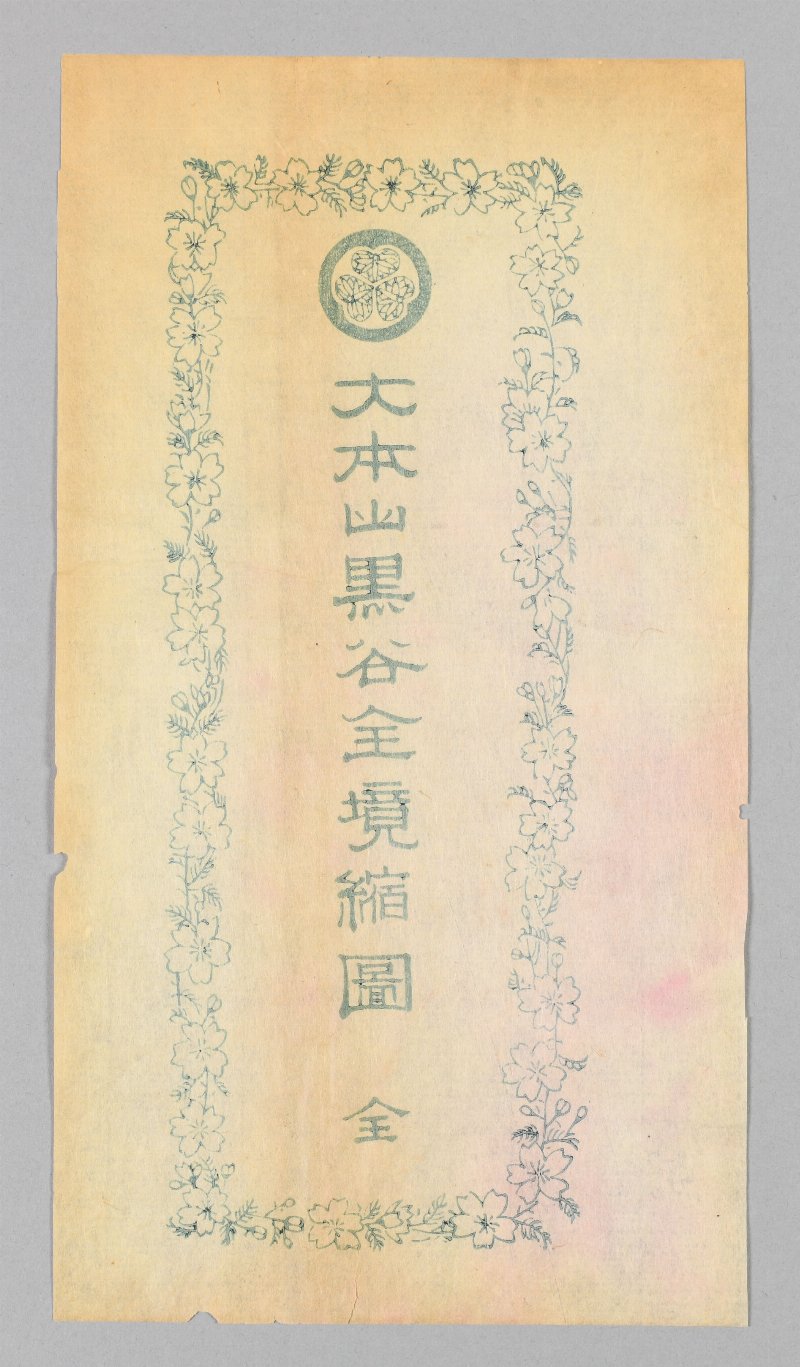 大本山黒谷全境縮圖　全